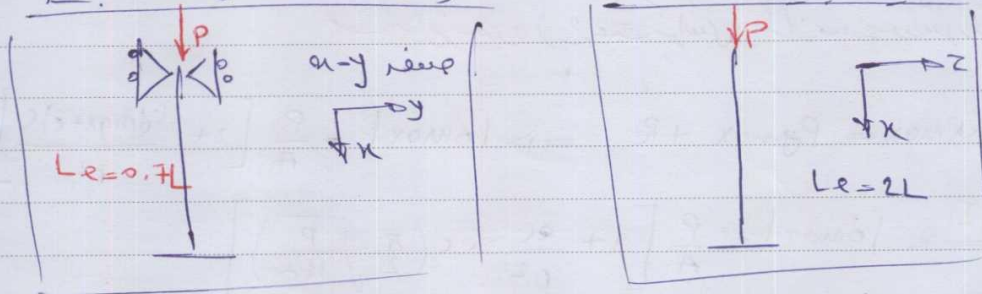 P
x-y
y
x
Le=0.7L
P
z
x
Le=2L